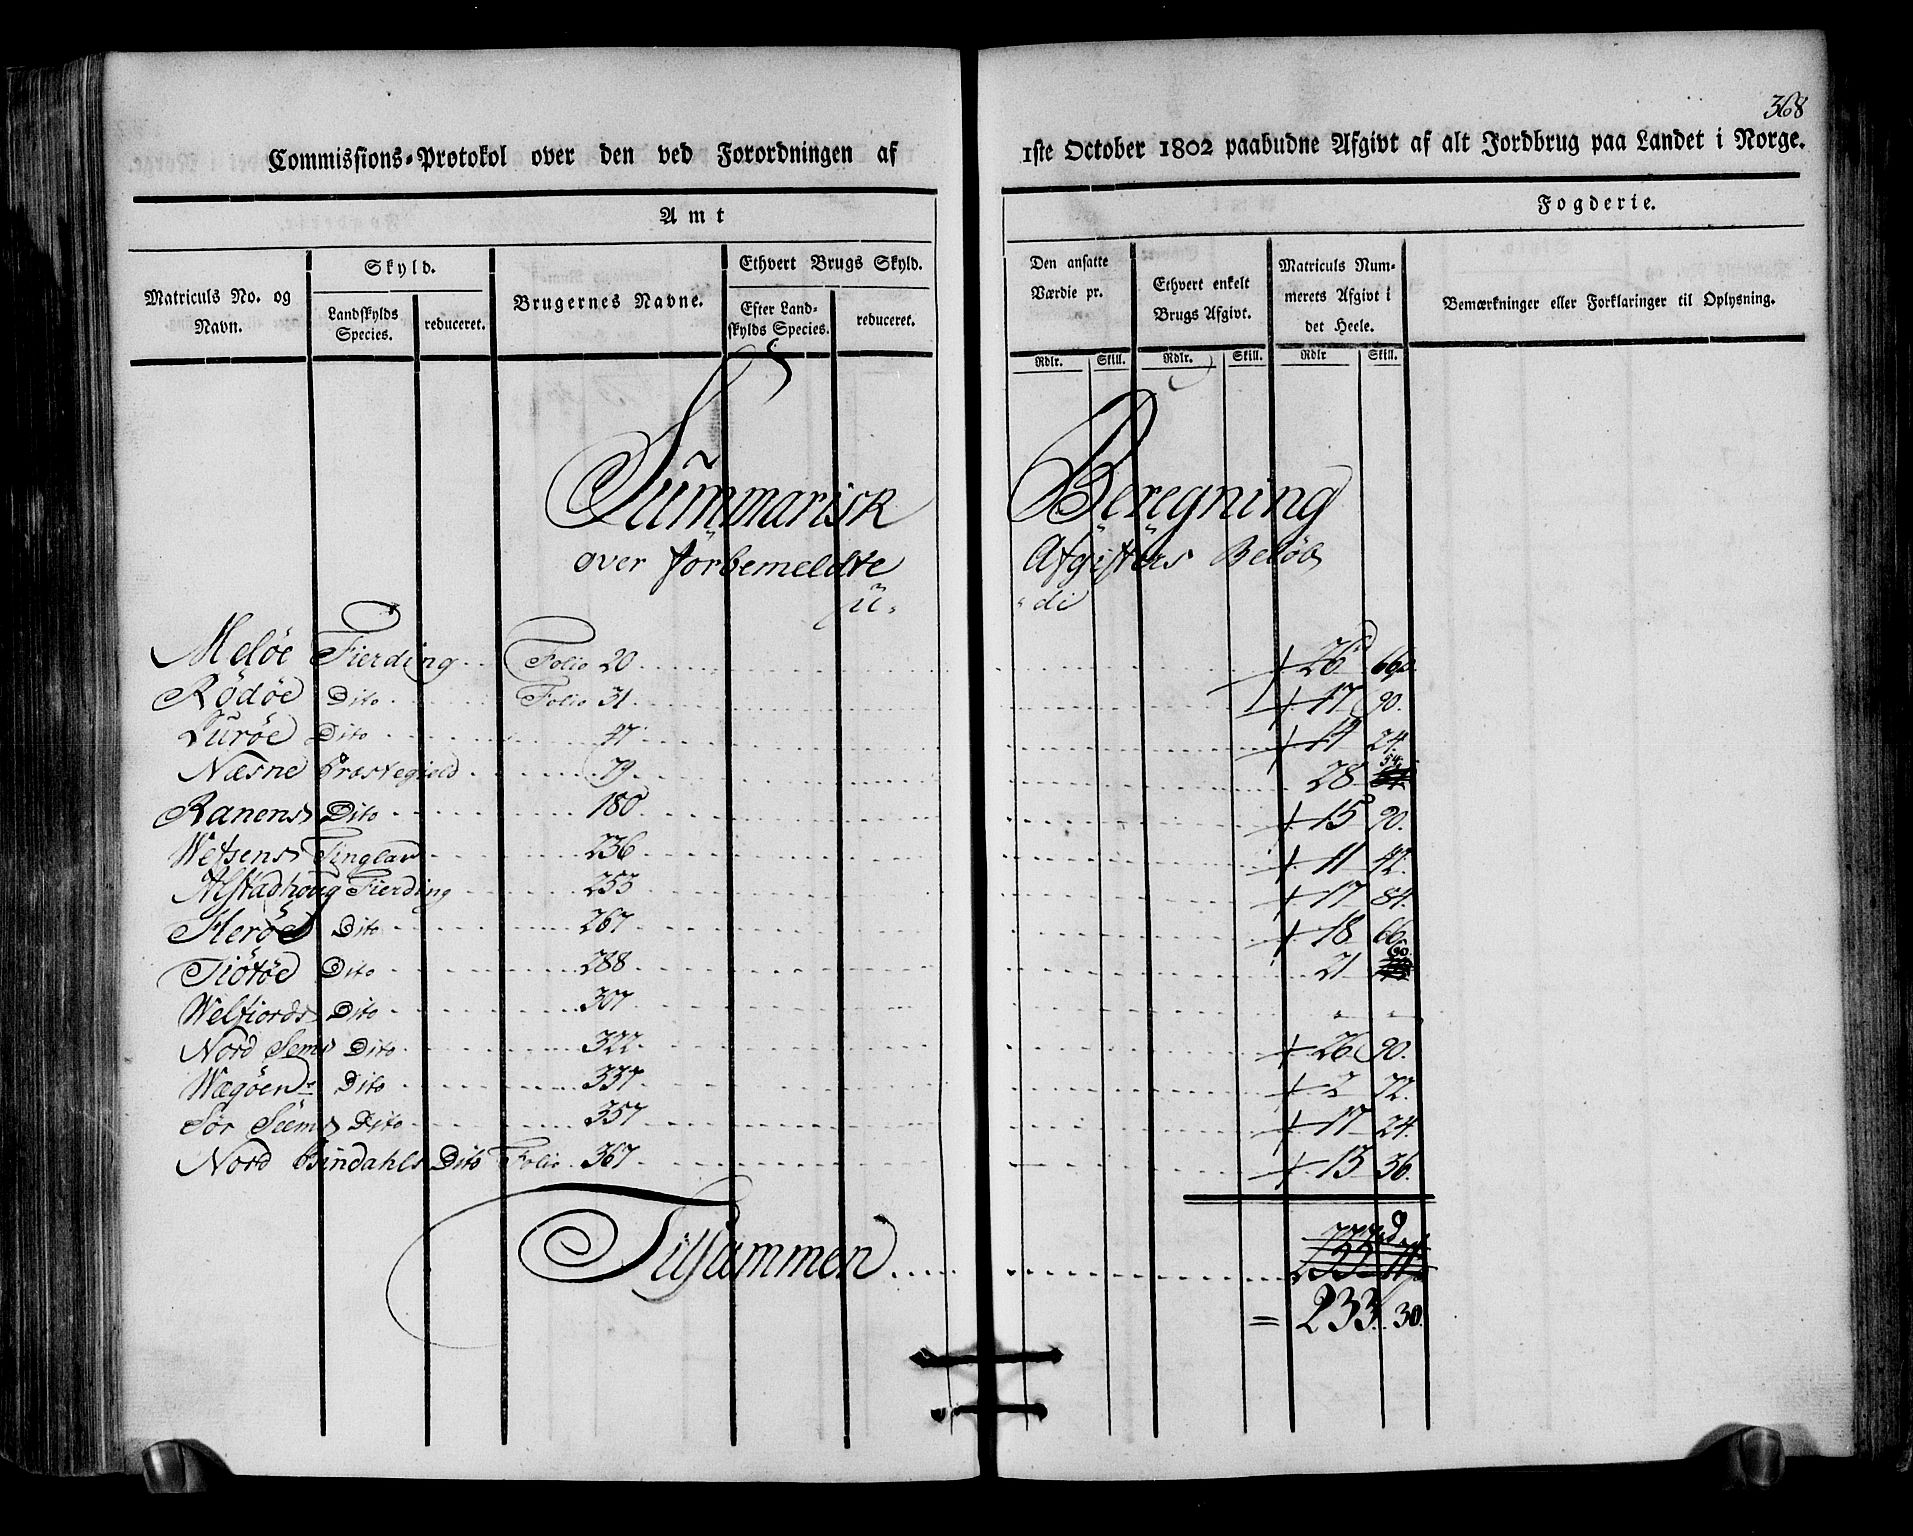 368
Commissions-Protokol over den ved Forordningen af 1ste October 1802 paabudne Afgivt af alt Jordbrug paa Landet i Norge.
Amt Fogderie.
Matriculs No. og Navn.
Skyld.
Landskylds Species.
reduceret.
Brugernes Navne.
Ethvert Brugs Skyld.
Efter Landskylds Species.
reduceret.
Den ansatte Værdie pr.
Ethvert enkelt Brugs Afgivt.
Matriculs Nummerets Afgivt i det Heele.
Bemærkninger eller Forklaringer til Oplysning.
Rdlr. Skill. Rdlr. Skill. Rdlr Skill.
Summarisk Beregning
over forbemeldte Afgifters Beløb
Meløe Fierding Folio 20 26 66
Rödöe Dito Folio 31 17 90.
Lurøe Dito 47 14 24.
Næsne Præstegield 79 28 54.
Ranens Dito 180 15 90.
Wefsens Tinglav 236 11 42.
Alstadhoug Fierding 253 17 84.
Herøe Dito 267 18 66.
Tiötöe Dito 288 21 60.
Welfiords Dito 307 " "
Nord Sems Dito 322 26 90.
Wægöens Dito 337 2 72.
Sör Sems Dito 357 17 24.
Nord Bindahls Dito Folio 367 13 36.
Tilsammen
= 233. 30.